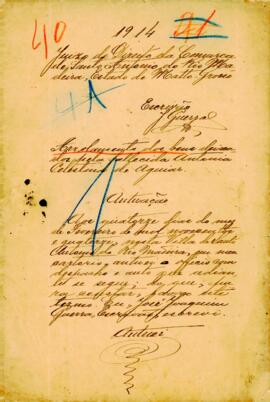 40 1914 21
Juizo de Direito da Comarca
de Santo Antonio do Rio Ma-
deira, Estado de Matto Grosso
Escrivão
Guerra
Arrolamento dos bens deixa-
dos pela fallecida Antonia
de Aguiar.
Autuação
Aos quatorze dias do mez
de Fevereiro de mil novecentos
e quatorze, nesta Villa de Santo
Antonio do Rio Madeira, em meu
cartorio, autuo o officio com
despacho e auto que adean-
te se segue; do que, pa-
ra constar, lavro este
termo. Eu, José Joaquim
Guerra, Escrivão, subscrevi.
Autuei